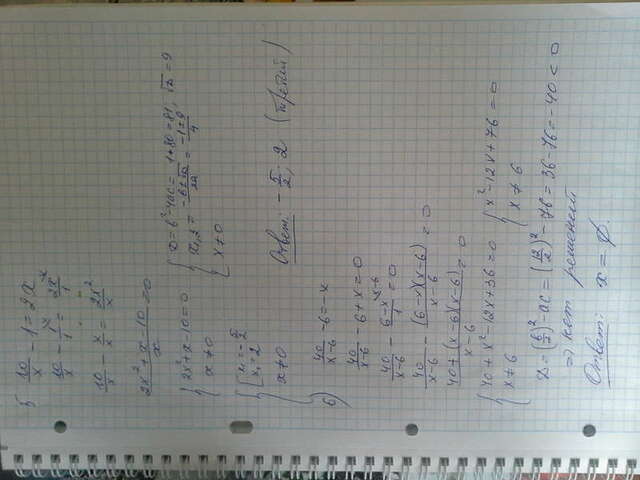 5) 10/x - 1 = 2x
10/x - 1/1 = 2x/1
10/x - x/x = 2x²/x
(2x² + x - 10)/x = 0
{ 2x² + x - 10 = 0
{ x ≠ 0
{ D = b² - 4ac = 1 + 80 = 81, √D = 9
{ x₁,₂ = (-b ± √D)/2a = (-1 ± 9)/4
{ x ≠ 0
{ [ x₁ = -5/2
{ [ x₂ = 2
{ x ≠ 0
Ответ: -5/2; 2 (третий)
6) 40/(x-6) - 6 = -x
40/(x-6) - 6 + x = 0
40/(x-6) - (6-x)/1 = 0
40/(x-6) - ((6-x)(x-6))/(x-6) = 0
(40 + (x-6)(x-6))/(x-6) = 0
{ 40 + x² - 12x + 36 = 0
{ x ≠ 6
{ x² - 12x + 76 = 0
{ x ≠ 6
D = (b/2)² - ac = (12/2)² - 76 = 36 - 76 = -40 < 0
=> нет решений
Ответ: x = ∅.